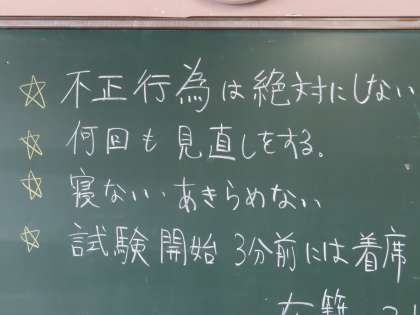 ☆ 不正行為は絶対にしない
☆ 何回も見直しをする。
☆ 寝ない・あきらめない
☆ 試験開始 3分前には着席
在籍